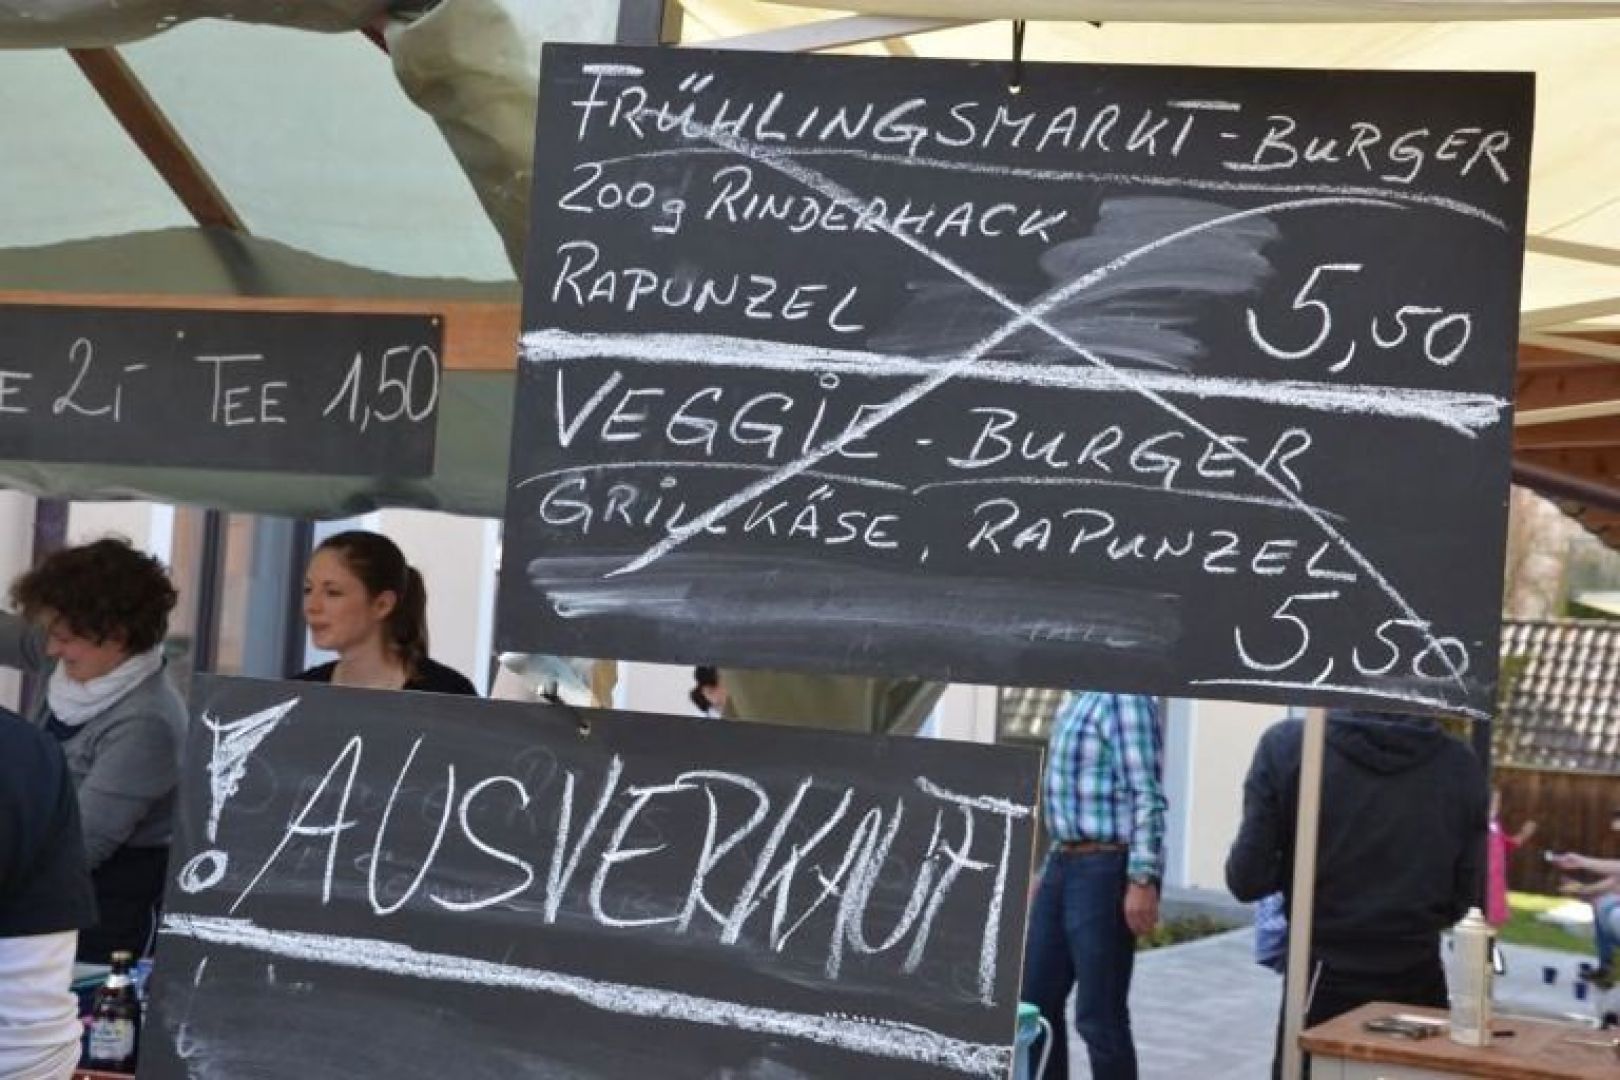 FRÜHLINGSMARKT-BURGER
200g RINDERHACK
RAPUNZEL
5,50
VEGGIE-BURGER
GRILLKÄSE, RAPUNZEL
5,50
E 2,- TEE 1,50
! AUSVERKAUFT